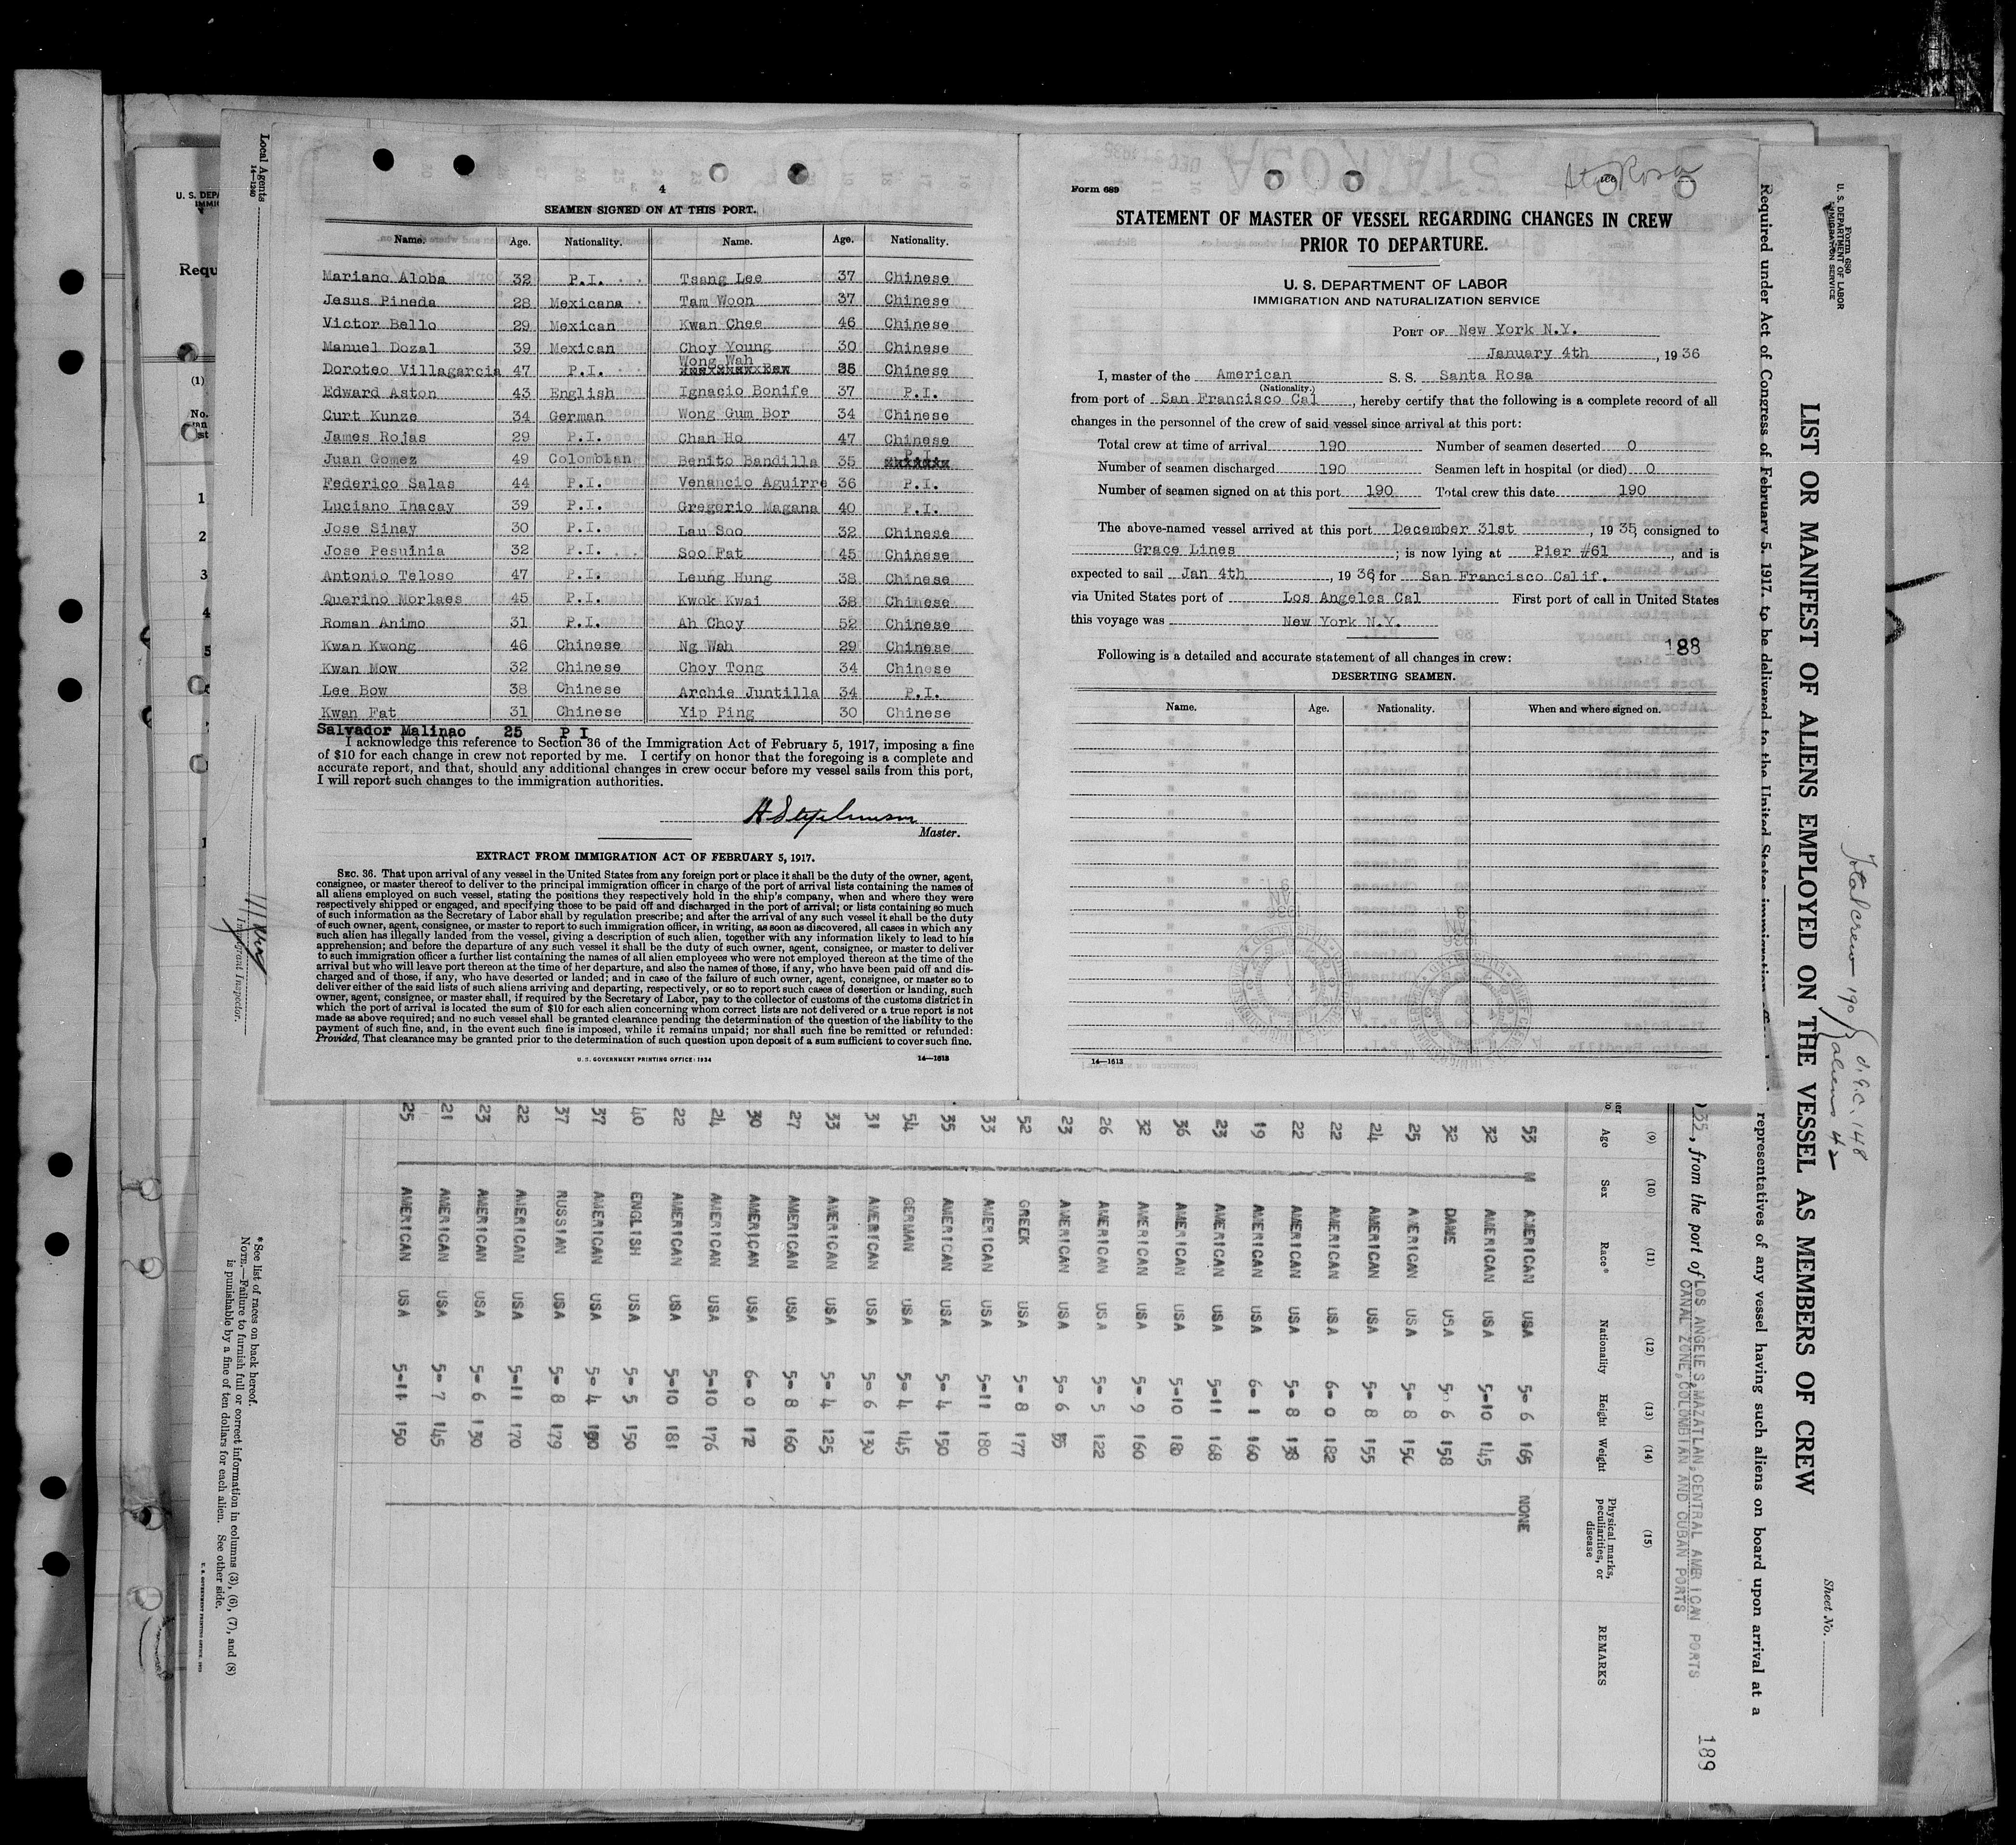 4
SEAMEN SIGNED ON AT THIS PORT.
Name. Age. Nationality. Name. Age. Nationality.
Mariano Aloba 32 P.I. Tsang Lee 37 Chinese
Jesus Pineda 28 Mexicana Tam Woon 37 Chinese
Victor Bello 29 Mexican Kwan Chee 46 Chinese
Manuel Dozal 39 Mexican Choy Young 30 Chinese
Doroteo Villagarcia 47 P.I. Wong Wah 35 Chinese
Edward Aston 43 English Ignacio Bonife 37 P.I.
Curt Kunze 34 German Wong Gum Bor 34 Chinese
James Rojas 29 P.I. Chan Ho 47 Chinese
Juan Gomez 49 Colombian Benito Bandilla 35 P.I.
Federico Salas 44 P.I. Venancio Aguirre 36 P.I.
Luciano Inacay 39 P.I. Gregorio Magana 40 P.I.
Jose Sinay 30 P.I. Lau Soo 32 Chinese
Jose Pesuinia 32 P.I. Soo Fat 45 Chinese
Antonio Teloso 47 P.I. Leung Hung 38 Chinese
Querino Morlaes 45 P.I. Kwok Kwai 38 Chinese
Roman Animo 31 P.I. Ah Choy 52 Chinese
Kwan Kwong 46 Chinese Ng Wah 29 Chinese
Kwan Mow 32 Chinese Choy Tong 34 Chinese
Lee Bow 38 Chinese Archie Juntilla 34 P.I.
Kwan Fat 31 Chinese Yip Ping 30 Chinese
Salvador Malinao 25 P I
I acknowledge this reference to Section 36 of the Immigration Act of February 5, 1917, imposing a fine
of $10 for each change in crew not reported by me. I certify on honor that the foregoing is a complete and
accurate report, and that, should any additional changes in crew occur before my vessel sails from this port,
I will report such changes to the immigration authorities.
Master.
EXTRACT FROM IMMIGRATION ACT OF FEBRUARY 5, 1917.
SEC. 36. That upon arrival of any vessel in the United States from any foreign port or place it shall be the duty of the owner, agent,
consignee, or master thereof to deliver to the principal immigration officer in charge of the port of arrival lists containing the names of
all aliens employed on such vessel, stating the positions they respectively hold in the ship's company, when and where they were
respectively shipped or engaged, and specifying those to be paid off and discharged in the port of arrival; or lists containing so much
of such information as the Secretary of Labor shall by regulation prescribe; and after the arrival of any such vessel it shall be the duty
of such owner, agent, consignee, or master to report to such immigration officer, in writing, as soon as discovered, all cases in which any
such alien has illegally landed from the vessel, giving a description of such alien, together with any information likely to lead to his
apprehension; and before the departure of any such vessel it shall be the duty of such owner, agent, consignee, or master to deliver
to such immigration officer a further list containing the names of all alien employees who were not employed thereon at the time of the
arrival but who will leave port thereon at the time of her departure, and also the names of those, if any, who have been paid off and dis-
charged and of those, if any, who have deserted or landed; and in case of the failure of such owner, agent, consignee, or master so to
deliver either of the said lists of such aliens arriving and departing, respectively, or so to report such cases of desertion or landing, such
owner, agent, consignee, or master shall, if required by the Secretary of Labor, pay to the collector of customs of the customs district in
which the port of arrival is located the sum of $10 for each alien concerning whom correct lists are not delivered or a true report is not
made as above required; and no such vessel shall be granted clearance pending the determination of the question of the liability to the
payment of such fine, and, in the event such fine is imposed, while it remains unpaid; nor shall such fine be remitted or refunded:
Provided, That clearance may be granted prior to the determination of such question upon deposit of a sum sufficient to cover such fine.
U. S. GOVERNMENT PRINTING OFFICE: 1934 14—1613
Form 689
Sta Rosa
STATEMENT OF MASTER OF VESSEL REGARDING CHANGES IN CREW
PRIOR TO DEPARTURE.
U. S. DEPARTMENT OF LABOR
IMMIGRATION AND NATURALIZATION SERVICE
PORT OF New York N.Y.
January 4th, 1936
I, master of the American S. S. Santa Rosa
(Nationality.)
from port of San Francisco Cal, hereby certify that the following is a complete record of all
changes in the personnel of the crew of said vessel since arrival at this port:
Total crew at time of arrival 190 Number of seamen deserted 0
Number of seamen discharged 190 Seamen left in hospital (or died) 0
Number of seamen signed on at this port 190 Total crew this date 190
The above-named vessel arrived at this port December 31st, 1935, consigned to
Grace Lines; is now lying at Pier #61, and is
expected to sail Jan 4th, 1936 for San Francisco Calif.
via United States port of Los Angeles Cal First port of call in United States
this voyage was New York N.Y.
188
Following is a detailed and accurate statement of all changes in crew:
DESERTING SEAMEN.
Name. Age. Nationality. When and where signed on.
14—1613
Form 680
U. S. DEPARTMENT OF LABOR
IMMIGRATION SERVICE
Sheet No.
Total crew 190
U.S.C. 148
aliens 42
LIST OR MANIFEST OF ALIENS EMPLOYED ON THE VESSEL AS MEMBERS OF CREW
Required under Act of Congress of February 5, 1917, to be delivered to the United States immigration
representatives of any vessel having such aliens on board upon arrival at a
35, from the port of LOS ANGELES, MAZATLAN, CENTRAL AMERICAN PORTS
CANAL ZONE, COLOMBIAN AND CUBAN PORTS
189
(9) (10) (11) (12) (13) (14) (15)
Age Sex Race* Nationality Height Weight Physical marks, peculiarities, or disease REMARKS
53 M AMERICAN USA 5-6 165 NONE
32 AMERICAN USA 5-10 145
32 DANE USA 5-6 158
25 AMERICAN USA 5-8 150
24 AMERICAN USA 5-8 155
22 AMERICAN USA 6-0 182
22 AMERICAN USA 5-8 138
19 AMERICAN USA 6-1 160
23 AMERICAN USA 5-11 168
36 AMERICAN USA 5-10 180
32 AMERICAN USA 5-9 160
26 AMERICAN USA 5-5 122
23 AMERICAN USA 5-6
52 GREEK USA 5-8 177
33 AMERICAN USA 5-11 180
35 AMERICAN USA 5-4 150
54 GERMAN USA 5-4 145
31 AMERICAN USA 5-6 130
33 AMERICAN USA 5-4 125
27 AMERICAN USA 5-8 160
30 AMERICAN USA 6-0 172
24 AMERICAN USA 5-10 176
22 AMERICAN USA 5-10 181
40 ENGLISH USA 5-5 150
37 AMERICAN USA 5-4
37 RUSSIAN USA 5-8 179
22 AMERICAN USA 5-11 170
23 AMERICAN USA 5-6 130
21 AMERICAN USA 5-7 145
25 AMERICAN USA 5-11 150
*See list of races on back hereof.
NOTE.—Failure to furnish full or correct information in columns (3), (6), (7), and (8)
is punishable by a fine of ten dollars for each alien. See other side.
Local Agents
14—1240
Immigrant Inspector.
U. S. DEPA
IMMI
Requ
(1)
No.
1
2
3
4
5